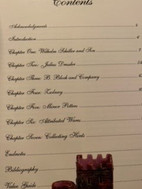 Contents
Acknowledgments
Introduction
Chapter One: Wilhelm Schiller and Son
Chapter Two: Julius Dressler
Chapter Three: B. Bloch and Company
Chapter Four:
Chapter Five: Minor Potters
Chapter Six: Attributed Wares
Chapter Seven: Collecting Hints
Endnotes
Bibliography
Value Guide